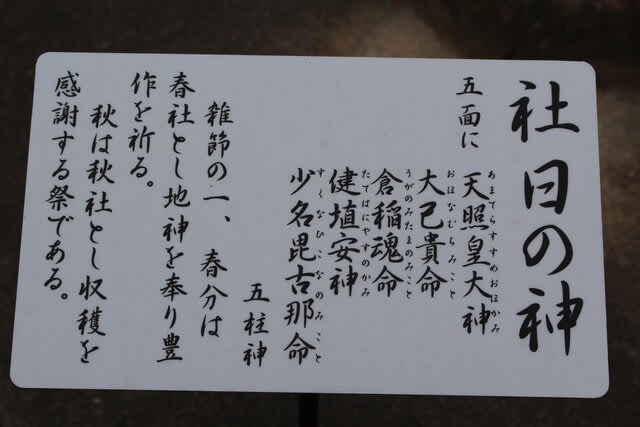 社日の神
五面に 天照皇大神
あまてらすすめおほかみ
大己貴命
おほなむちみこと
倉稲魂命
うがのみたまのみこと
健埴安神
たてはにやすのかみ
少名毘古那命
すくなひこなのみこと
五柱神
雑節の一、春分は
春社とし地神を奉り豊
作を祈る。
秋は秋社とし収穫を
感謝する祭である。